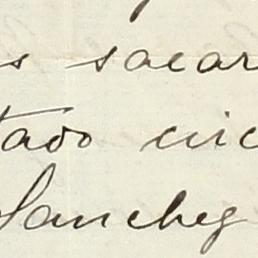 s sacar
tado cuc
Sanchez